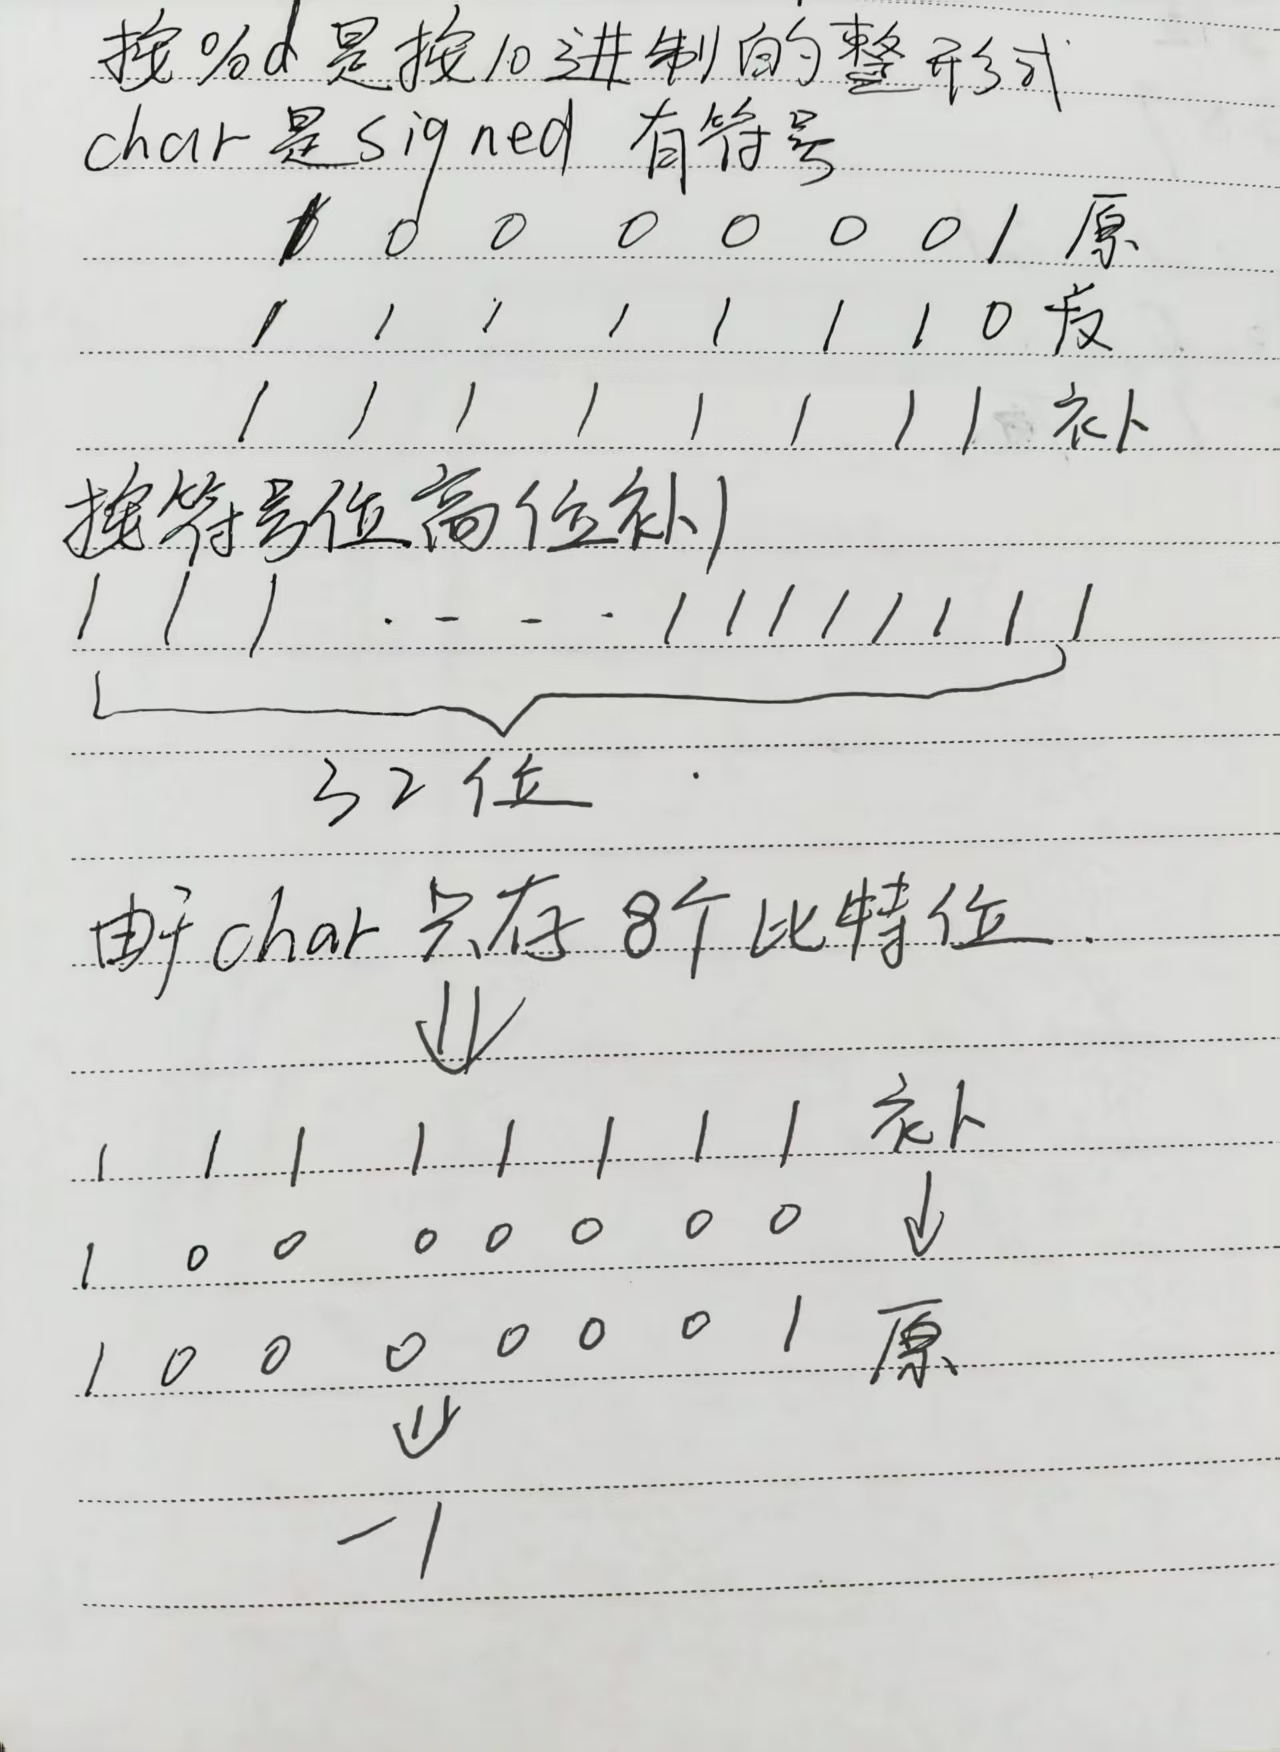 按%d是按10进制的整形式
char是signed 有符号
1 0 0 0 0 0 0 1 原
1 1 1 1 1 1 1 0 反
1 1 1 1 1 1 1 1 补
按符号位高位补1
1 1 1 . - - - . 1 1 1 1 1 1 1 1
32位
由于char只存8个比特位.
1 1 1 1 1 1 1 1 补
1 0 0 0 0 0 0 0
1 0 0 0 0 0 0 1 原
-1